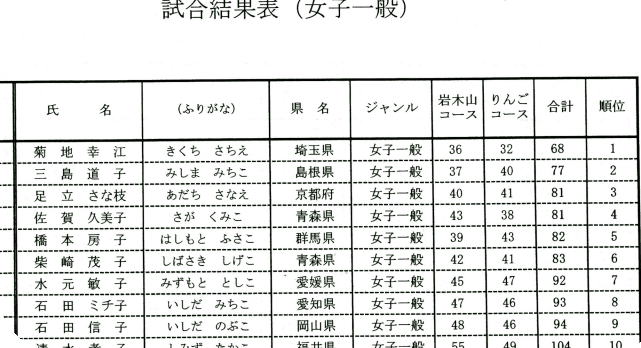 試合結果表（女子一般）
氏　名　（ふりがな）　県　名　ジャンル　岩木山コース　りんごコース　合計　順位
菊　地　幸　江　きくち　さちえ　埼玉県　女子一般　36　32　68　1
三　島　道　子　みしま　みちこ　島根県　女子一般　37　40　77　2
足　立　さな枝　あだち　さなえ　京都府　女子一般　40　41　81　3
佐　賀　久美子　さが　くみこ　青森県　女子一般　43　38　81　4
橋　本　房　子　はしもと　ふさこ　群馬県　女子一般　39　43　82　5
柴　崎　茂　子　しばさき　しげこ　青森県　女子一般　42　41　83　6
水　元　敏　子　みずもと　としこ　愛媛県　女子一般　45　47　92　7
石　田　ミチ子　いしだ　みちこ　愛知県　女子一般　47　46　93　8
石　田　信　子　いしだ　のぶこ　岡山県　女子一般　48　46　94　9
清　水　孝　子　しみず　たかこ　福井県　女子一般　55　49　104　10